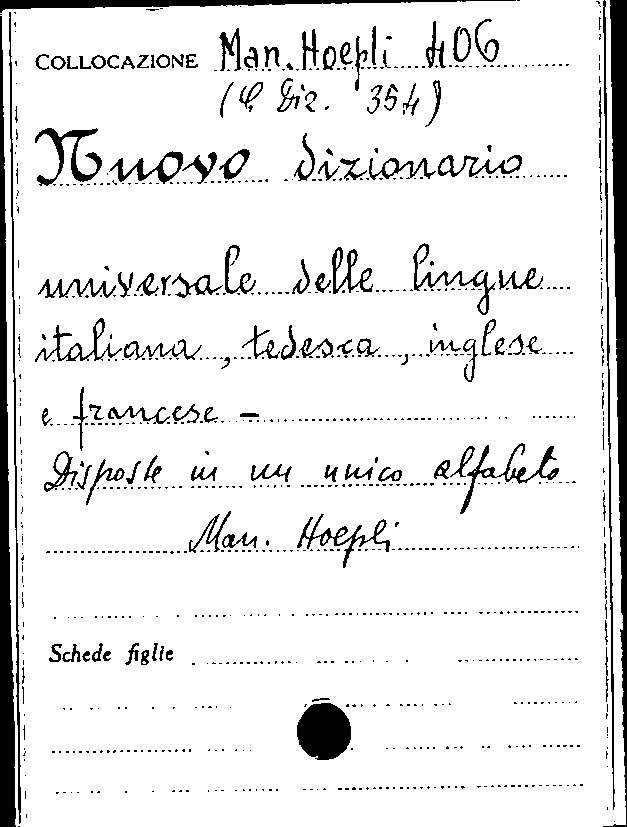 COLLOCAZIONE Man. Hoepli 406
(C Diz. 354)
Nuovo dizionario
universale delle lingue
italiana, tedesca, inglese
e francese –
Disposte in un unico alfabeto
Man. Hoepli
Schede figlie